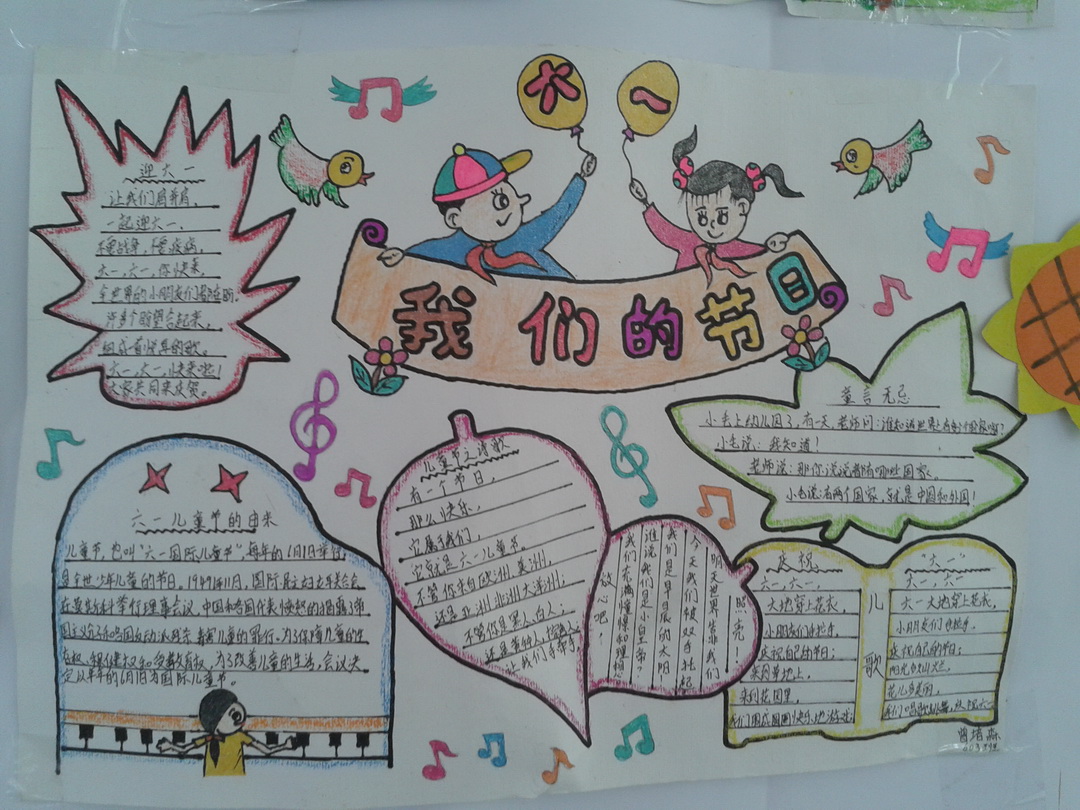 六一
我们的节日
迎六一
让我们肩并肩，
一起迎六一。
不要战争，不要疾病，
六一，六一，你快来，
全世界的小朋友们都在盼。
许多个盼望合起来，
组成着悦耳的歌。
六一，六一，快来啦！
大家共同来庆贺。
童言无忌
小毛上幼儿园了，有一天，老师问：谁知道世界上有多少个国家啊？
小毛说：我知道！
老师说：那你说说都有哪些国家。
小毛说：有两个国家，就是中国和外国！
六一儿童节的由来
儿童节，也叫“六一国际儿童节”，每年的6月1日举行，
是全世界少年儿童的节日。1949年11月，国际民主妇女联合会
在莫斯科举行理事会议，中国和各国代表愤怒的揭露了帝
国主义分子和各国反动派残杀、毒害儿童的罪行。为了保障儿童的生
存权、保健权和受教育权，为了改善儿童的生活，会议决
定以每年的6月1日为国际儿童节。
儿童节之诗歌
有一个节日，
那么快乐，
它属于我们，
它就是六一儿童节。
不管你来自欧洲、美洲；
还是亚洲、非洲、大洋洲；
不管你是黑人、白人；
还是黄种人、棕种人，
让我们手牵手，
今天世界生靠我们
照亮！
今天我们被双手托起
我们是早日晨的太阳
谁说我们是小皇帝？
我们充满憧憬和理想
放心吧！
儿歌
庆祝
六一，六一，
大地穿上花衣，
小朋友们拉起手，
庆祝自己的节日；
来到草地上，
来到花园里，
我们围成圆圈快乐地游戏；
“六一”
六一，六一，
六一大地穿上花衣，
小朋友们拉起手，
庆祝自己的节日；
花儿多美丽，
我们唱歌跳舞，热烈六一
曾培淼